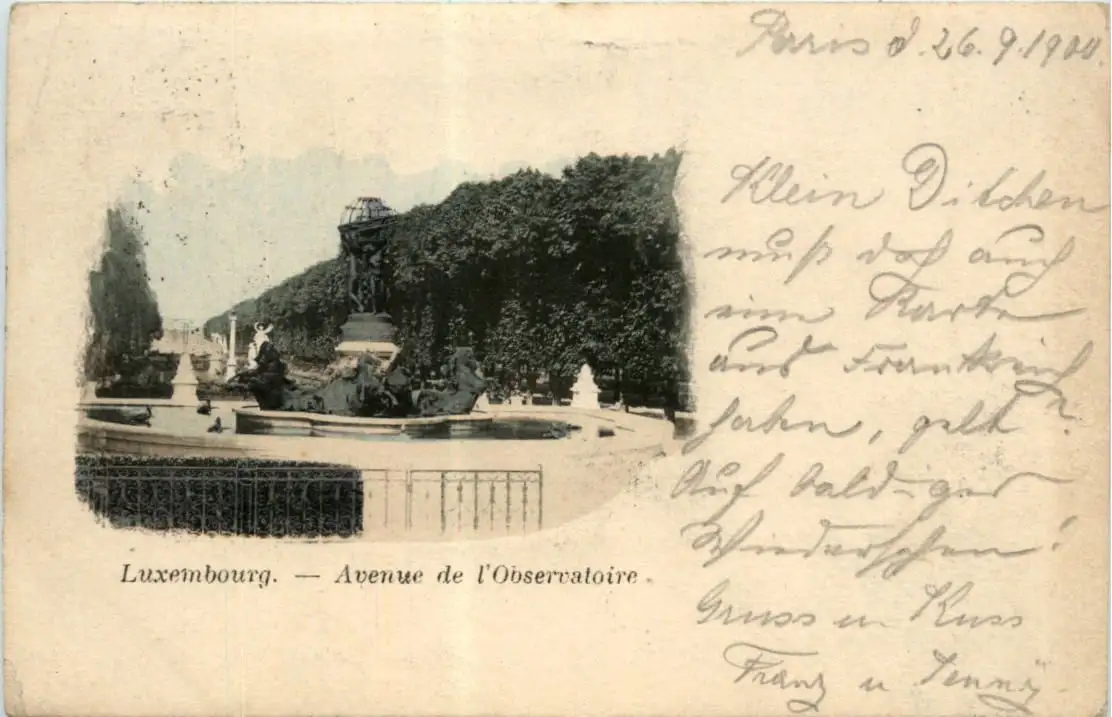 Paris d. 26.9.1900.
Klein Ditchen
muß doch auch
eine Karte
aus Frankreich
haben, gelt?
Auf baldiges
Wiedersehen!
Gruss u Kuss
Franz u Jenny.
Luxembourg. — Avenue de l'Observatoire.